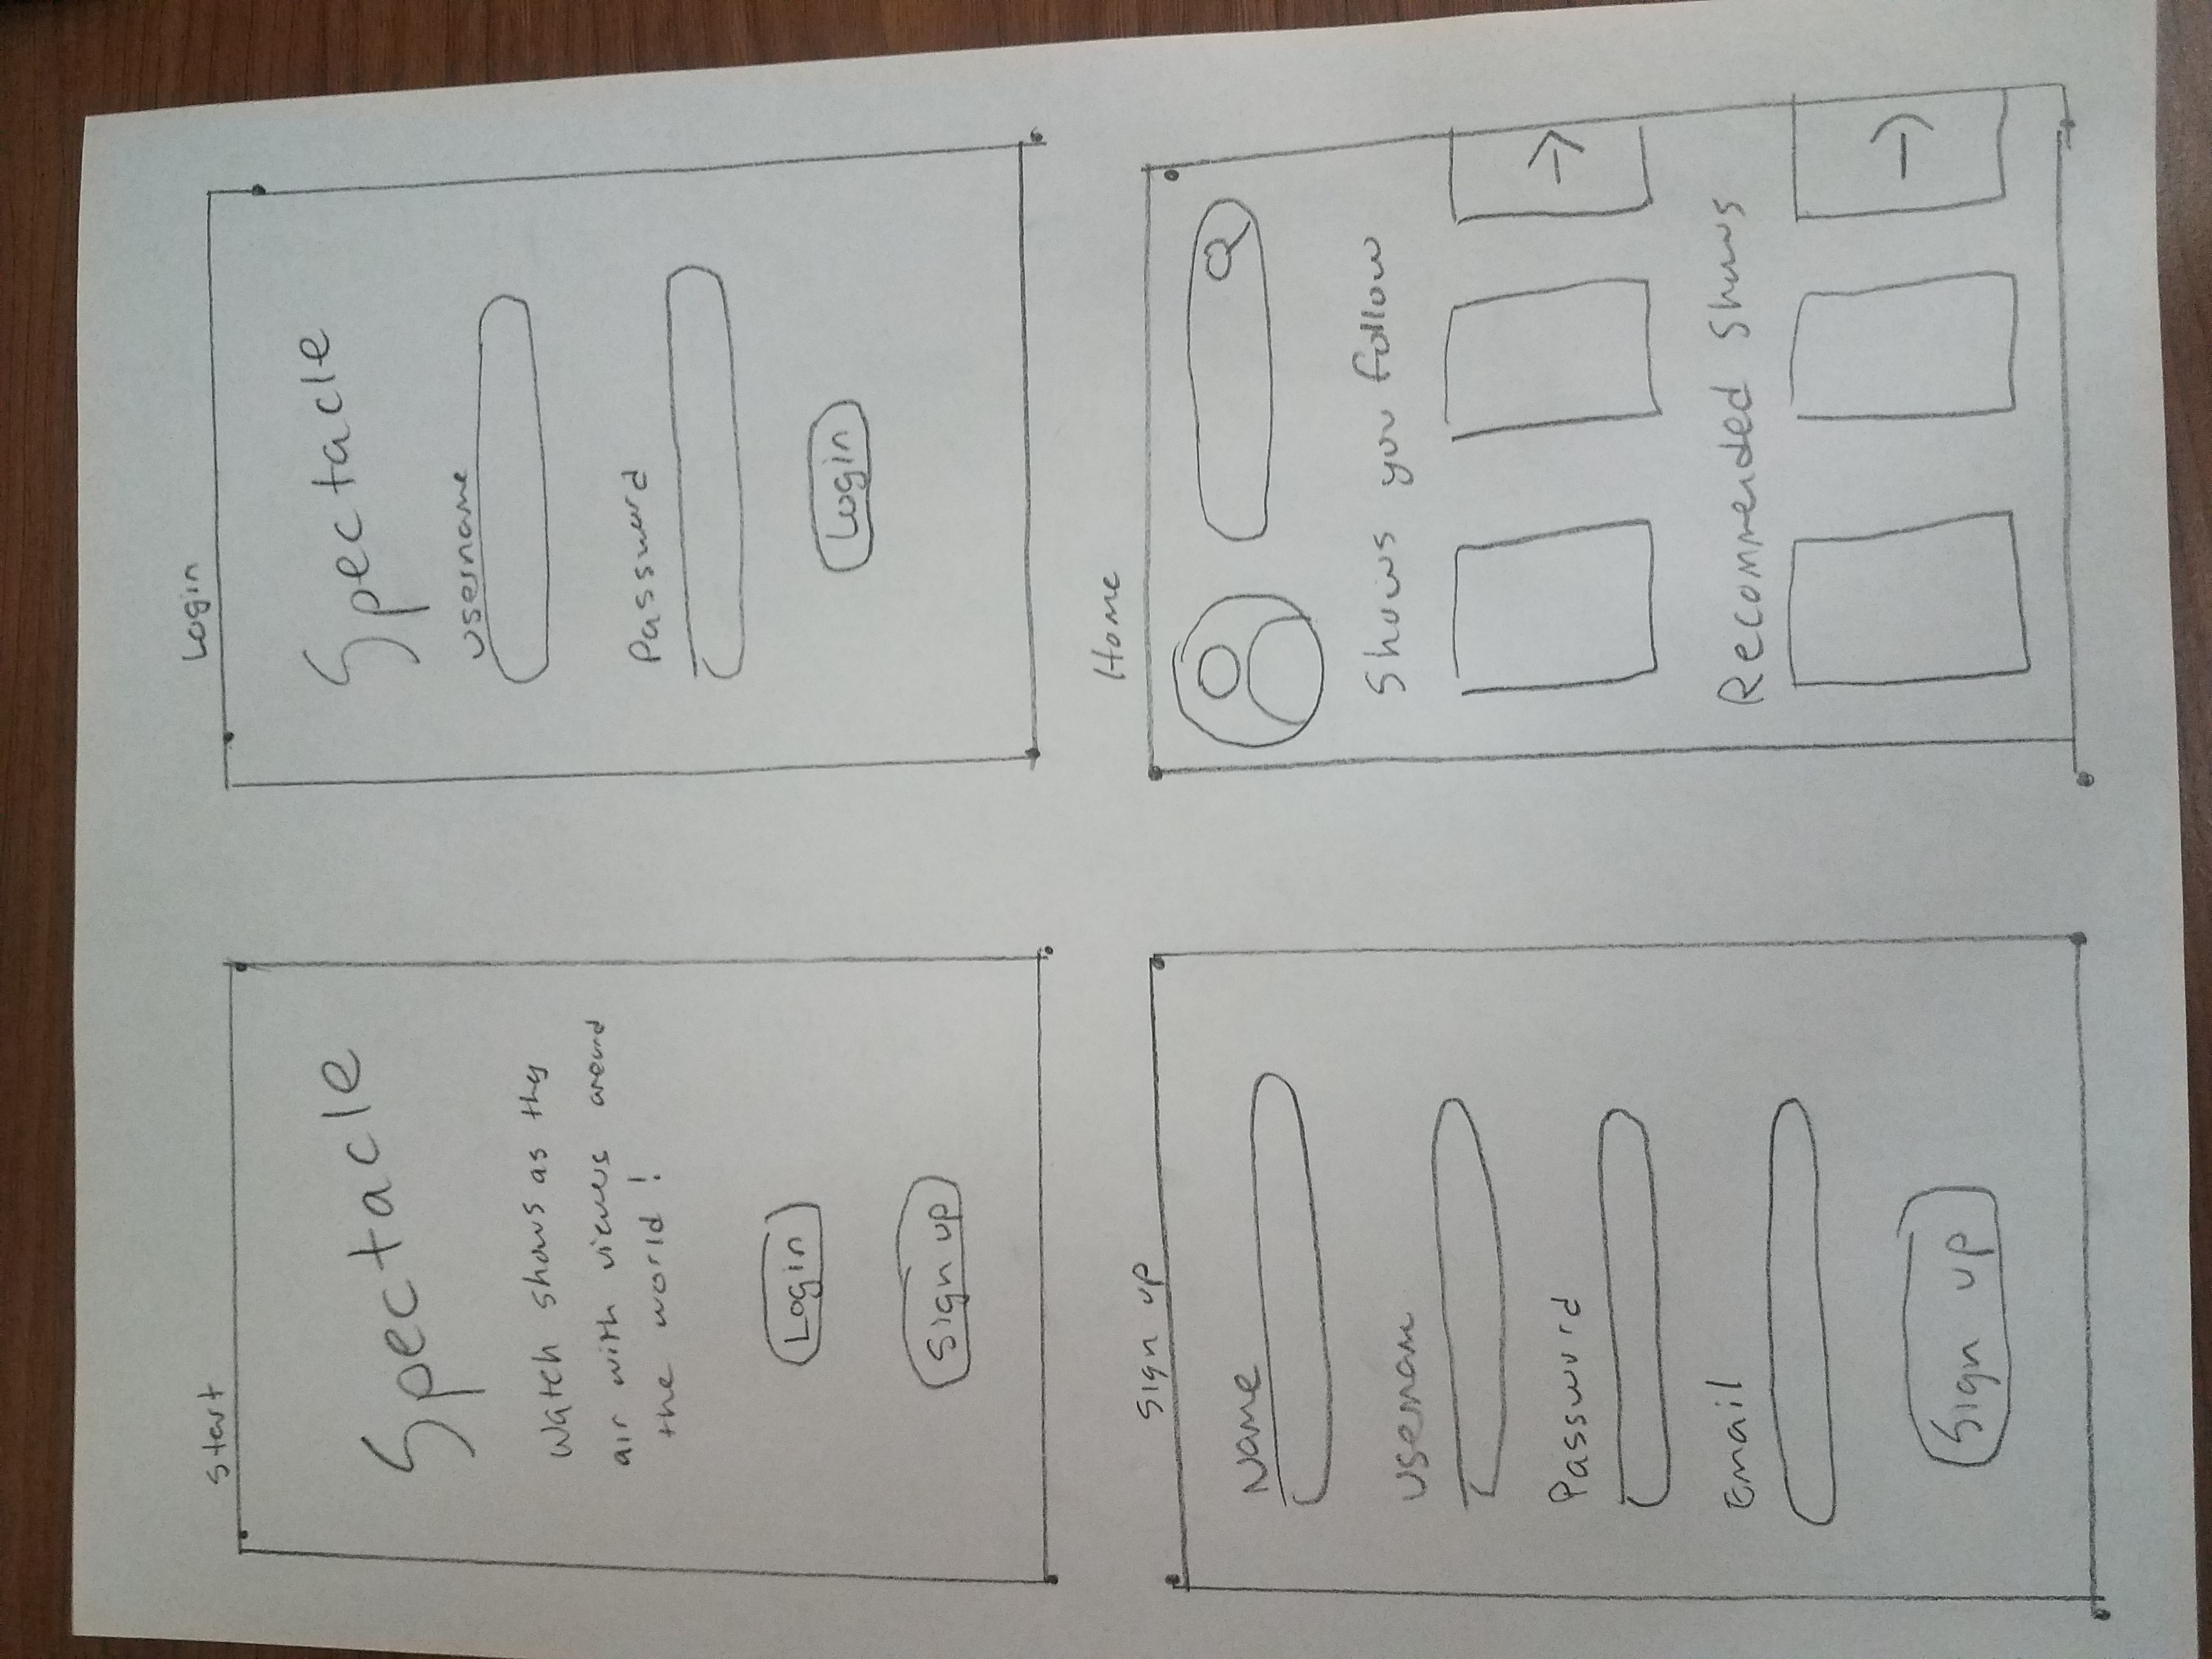 Start
Spectacle
Watch shows as they
air with viewers around
the world!
Login
Sign up
Login
Spectacle
Username
Password
Login
Sign up
Name
Username
Password
Email
Sign up
Home
Shows you follow
Recommended Shows